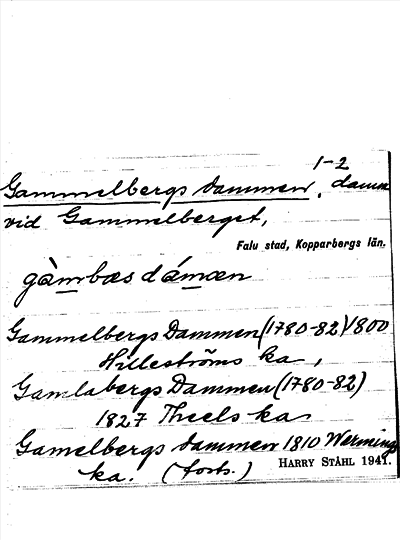 1-2
Gammelbergs dammen, damm
vid Gammelberget,
Falu stad, Kopparbergs län.
gàmbæs dámæn
Gammelbergs Dammen (1780-82) 1800
Hilleströms ka,
Gamlabergs Dammen (1780-82)
1827 Theels ka
Gamelbergs dammen 1810 Wermings
ka. (forts.)
HARRY STÅHL 1941.